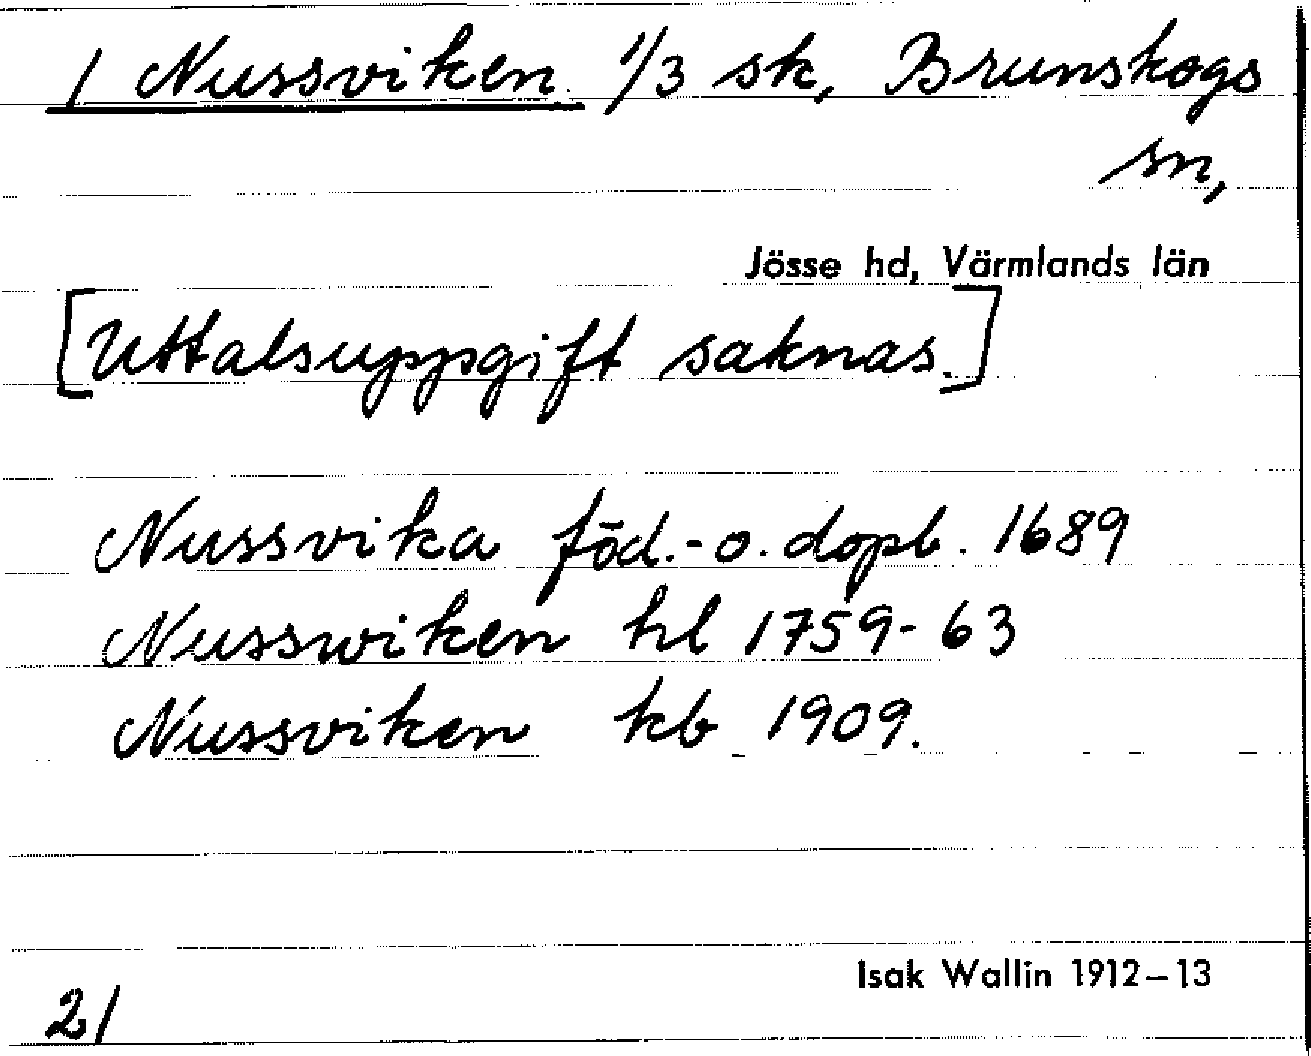 / Nussviken 1/3 sk, Brunskogs
sn,
Jösse hd, Värmlands län
[Uttalsuppgift saknas.]
Nussvika föd.-o. dopb. 1689
Nusswiken hl 1759-63
Nussviken kb 1909.
Isak Wallin 1912–13
2/